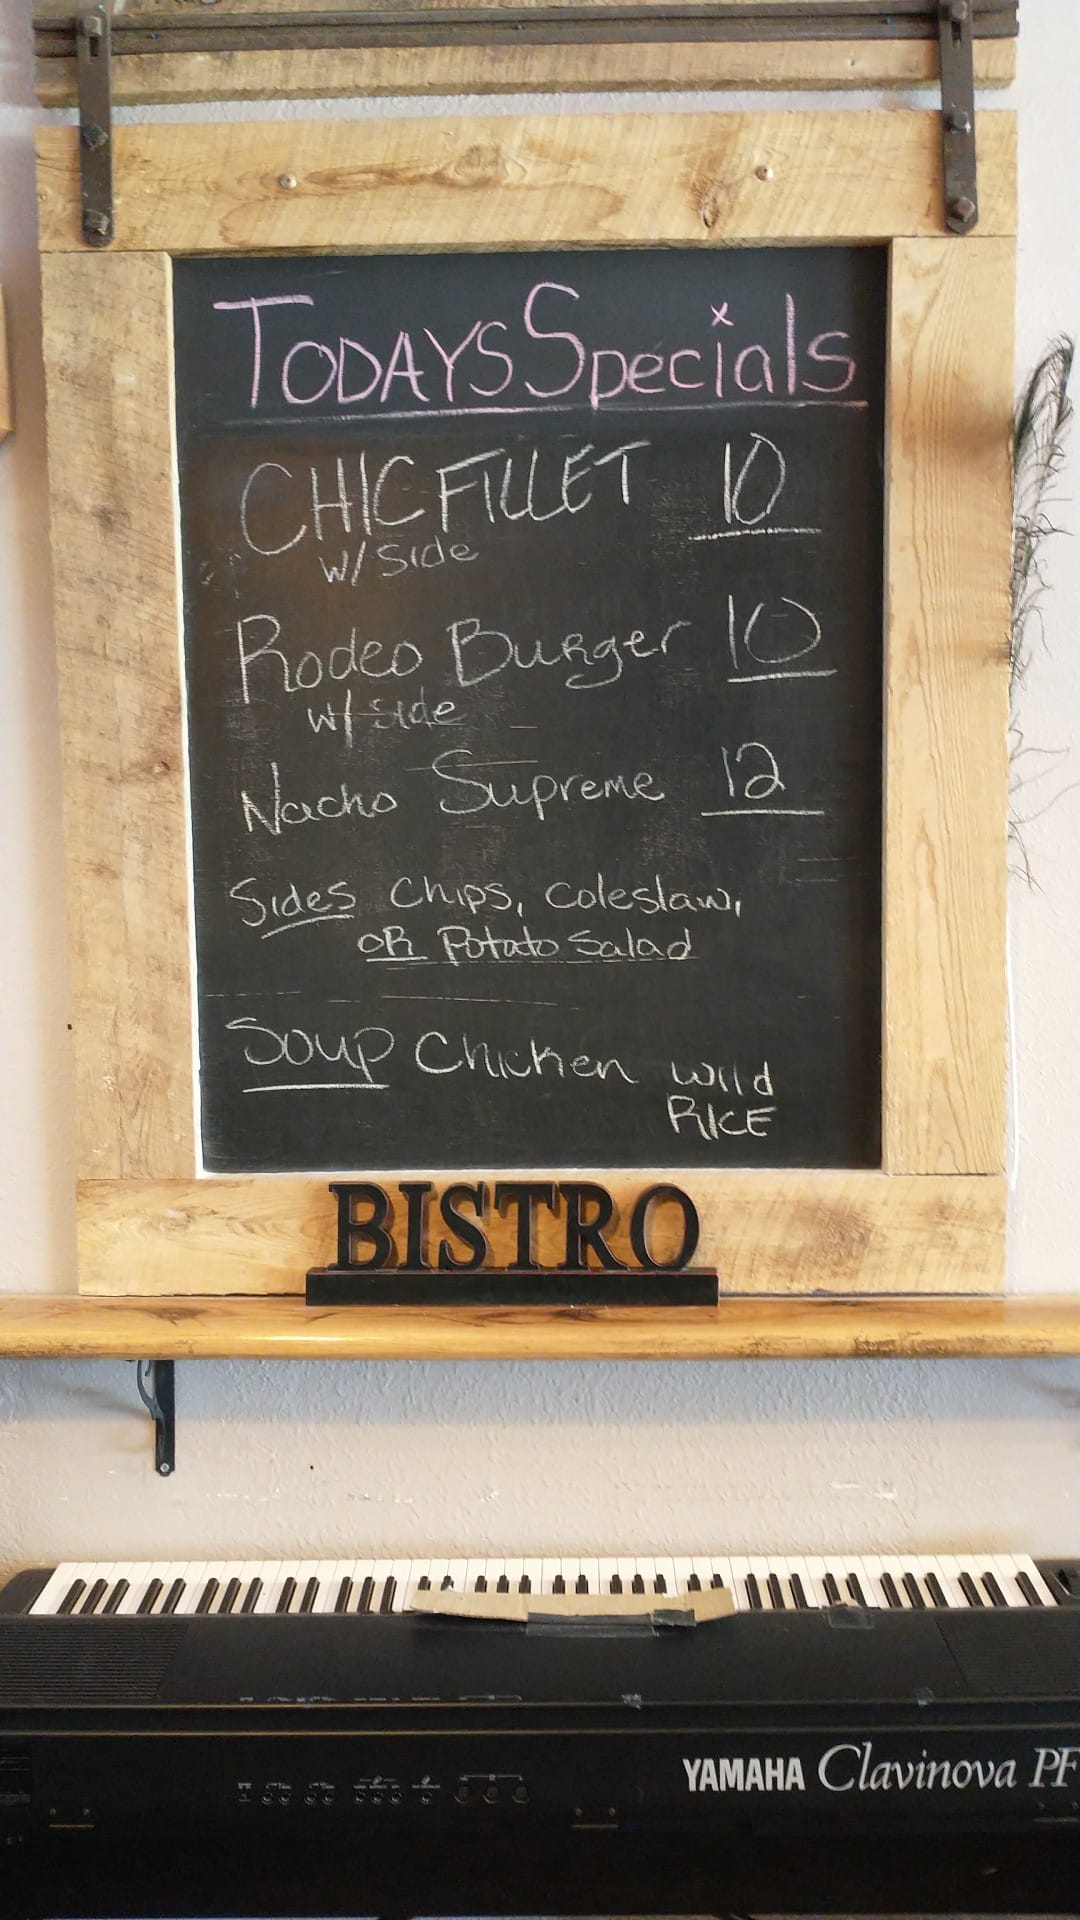 TODAYS Specials
CHIC FILLET 10
w/ Side
Rodeo Burger 10
w/ side
Nacho Supreme 12
Sides Chips, Coleslaw,
OR Potato Salad
Soup Chicken Wild
RICE
BISTRO
YAMAHA Clavinova PF